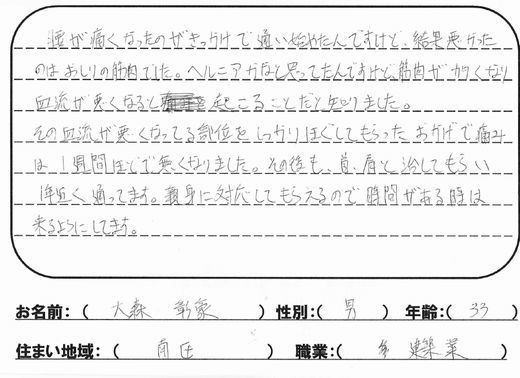 腰が痛くなったのがきっかけで通い始めたんですけど、結果悪かった
のはおしりの筋肉でした。ヘルニアかなと思ってたんですけど筋肉がかたくなり
血流が悪くなると起こることだと知りました。
その血流が悪くなってる部位をしっかりほぐしてもらったおかげで痛み
は1週間ほどで無くなりました。その後も、首、肩と治してもらい
1年近く通ってます。親身に対応してもらえるので時間がある時は
来るようにしてます。
お名前:( 大森 彰象 ) 性別:( 男 ) 年齢:( 33 )
住まい地域:( 南区 ) 職業:( 建築業 )